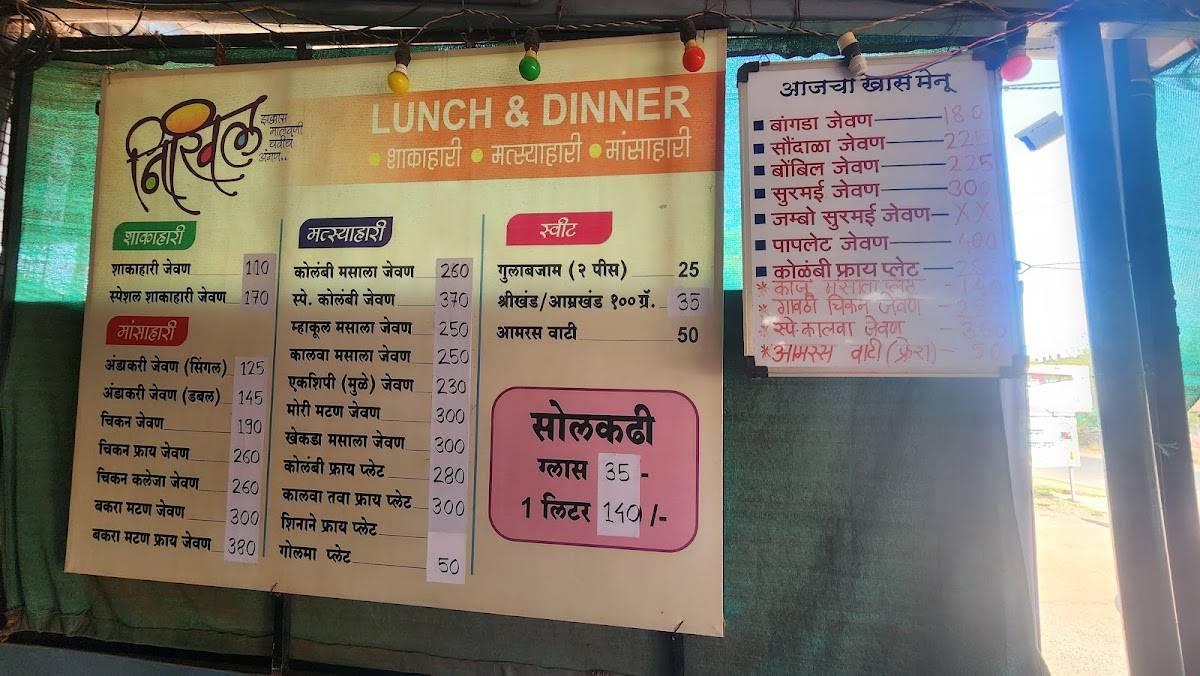 निखिल
इखास
मालवणी
चवीचं
अंगण..
LUNCH & DINNER
• शाकाहारी • मत्स्याहारी • मांसाहारी
शाकाहारी
शाकाहारी जेवण 110
स्पेशल शाकाहारी जेवण 170
मांसाहारी
अंडाकरी जेवण (सिंगल) 125
अंडाकरी जेवण (डबल) 145
चिकन जेवण 190
चिकन फ्राय जेवण 260
चिकन कलेजा जेवण 260
बकरा मटण जेवण 300
बकरा मटण फ्राय जेवण 380
मत्स्याहारी
कोलंबी मसाला जेवण 260
स्पे. कोलंबी जेवण 370
म्हाकूल मसाला जेवण 250
कालवा मसाला जेवण 250
एकशिपी (मुळे) जेवण 230
मोरी मटण जेवण 300
खेकडा मसाला जेवण 300
कोलंबी फ्राय प्लेट 280
कालवा तवा फ्राय प्लेट 300
शिनाने फ्राय प्लेट
गोलमा प्लेट 50
स्वीट
गुलाबजाम (२ पीस) 25
श्रीखंड/आम्रखंड १०० ग्रॅ. 35
आमरस वाटी 50
सोलकढी
ग्लास 35 -
1 लिटर 140 /-
आजचा खास मेनू
बांगडा जेवण 180
सौंदाळा जेवण 225
बोंबिल जेवण 225
सुरमई जेवण 300
जम्बो सुरमई जेवण XX
पापलेट जेवण 400
कोळंबी फ्राय प्लेट
* काजू मसाला प्लेट
* गावठी चिकन जेवण
* स्पे. कालवा जेवण
* आमरस वाटी (फ्रेश) 50